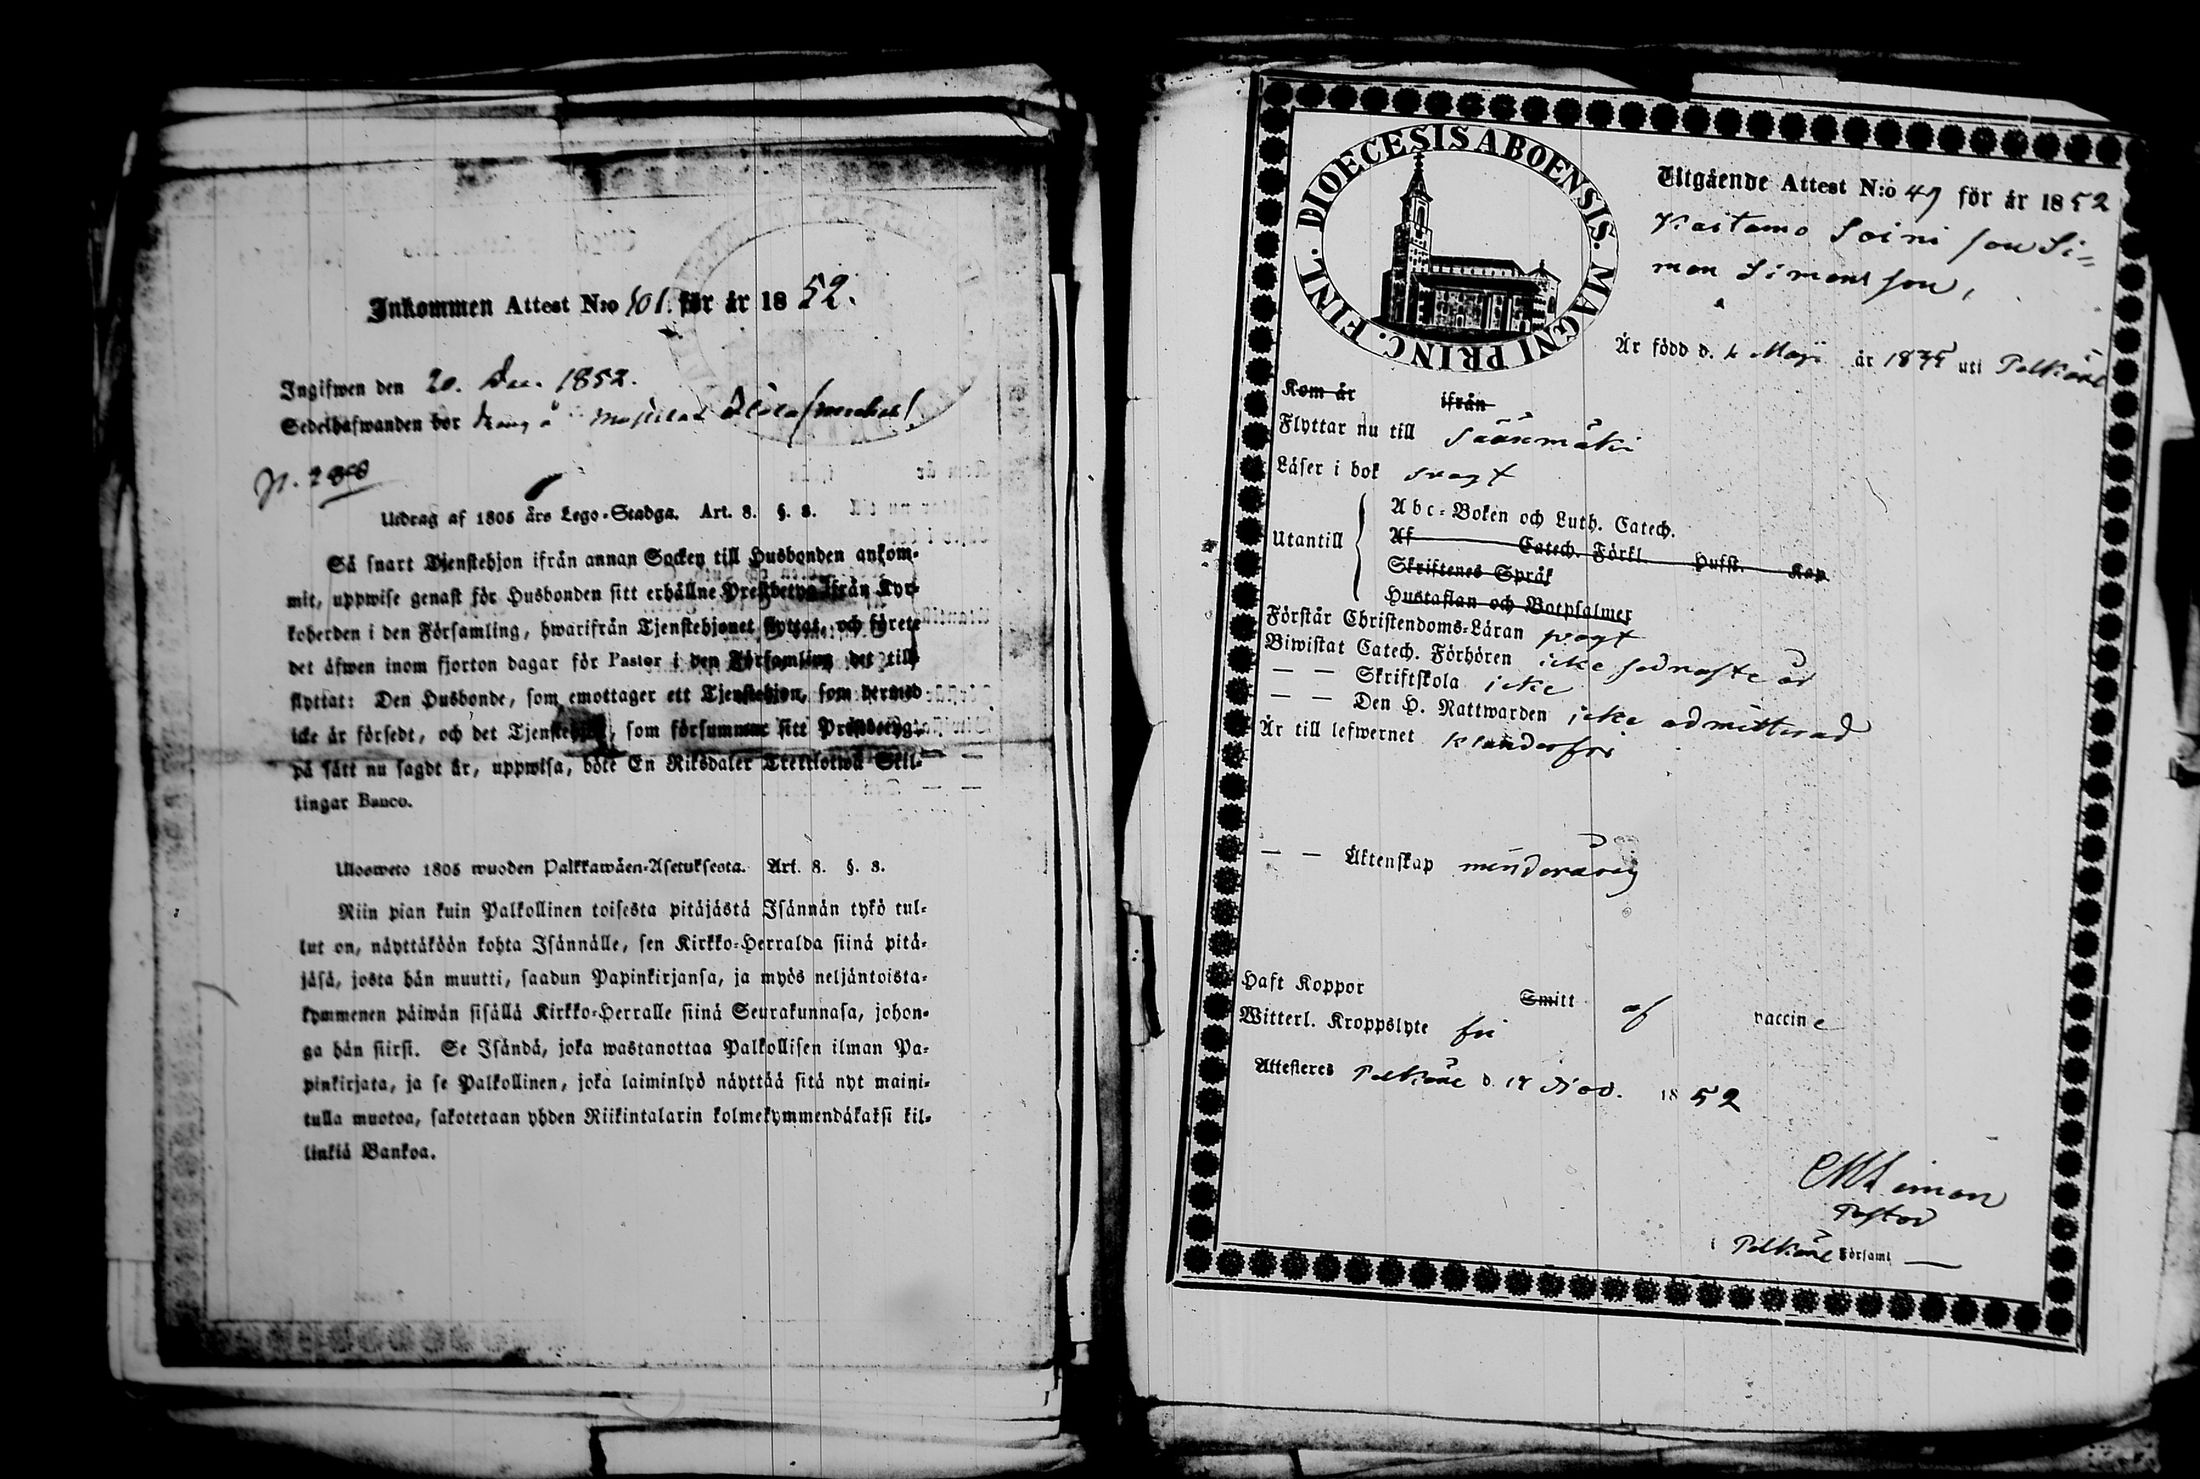 Inkommen Attest N:o 101. för år 1852.
Ingifwen den 20. Dec. 1852.
Sedelhafwanden bor
Utdrag af 1805 års Lego-Stadga. Art. 8. §. 8.
Så snart Tjenstehjon ifrån annan Socken till Husbonden ankom-
mit, uppwise genast för Husbonden sitt erhållne Prestbetyg ifrån Kyr-
koherden i den Församling, hwarifrån Tjenstehjonet flyttat, och förete
det äfwen inom fjorton dagar för Pastor i den Församling det till
flyttat: Den Husbonde, som emottager ett Tjenstehjon, som dermed
icke är försedt, och det Tjenstehjon, som försummar sitt Prestbetyg
på sätt nu sagdt är, uppwisa, böte En Riksdaler Trettiotwå Skil-
lingar Banco.
Ulosweto 1805 wuoden Palkkawäen-Asetuksesta. Art. 8. §. 8.
Niin pian kuin Palkollinen toisesta pitäjästä Isännän tykö tul-
lut on, näyttäköön kohta Isännälle, sen Kirkko-Herralda siinä pitä-
jäsä, josta hän muutti, saadun Papinkirjansa, ja myös neljäntoista-
kymmenen päiwän sisällä Kirkko-Herralle siinä Seurakunnasa, johon-
ga hän siirsi. Se Isändä, joka wastanottaa Palkollisen ilman Pa-
pinkirjata, ja se Palkollinen, joka laiminlyö näyttää sitä nyt maini-
tulla muotoa, sakotetaan yhden Riikintalarin kolmekymmendäkaksi kil-
linkiä Bankoa.
DIOECESIS ABOENSIS. MAGNI PRINC. FINL.
Utgående Attest N:o 49 för år 1852
Soini son Si-
mon Simonsson,
Är född d. Maji år 18 uti Pelkäne
Kom år ifrån
Flyttar nu till Sääxmäki
Läser i bok svagt
Utantill
Abc-Boken och Luth. Catech.
Af Catech. Förkl. Hufst. Kap.
Skriftenes Språk
Hustaflan och Botpsalmer
Förstår Christendoms-Läran svagt
Biwistat Catech. Förhören icke sednaste år
— — Skriftskola icke
— — Den H. Nattwarden icke admitterad
Är till lefwernet klanderfri
— — Äktenskap minderårig
Haft Koppor Smitt af vaccine
Witterl. Kroppslyte fri
Attesteres Pelkäne d. Nov. 1852
Pastor
i Pelkäne Församl